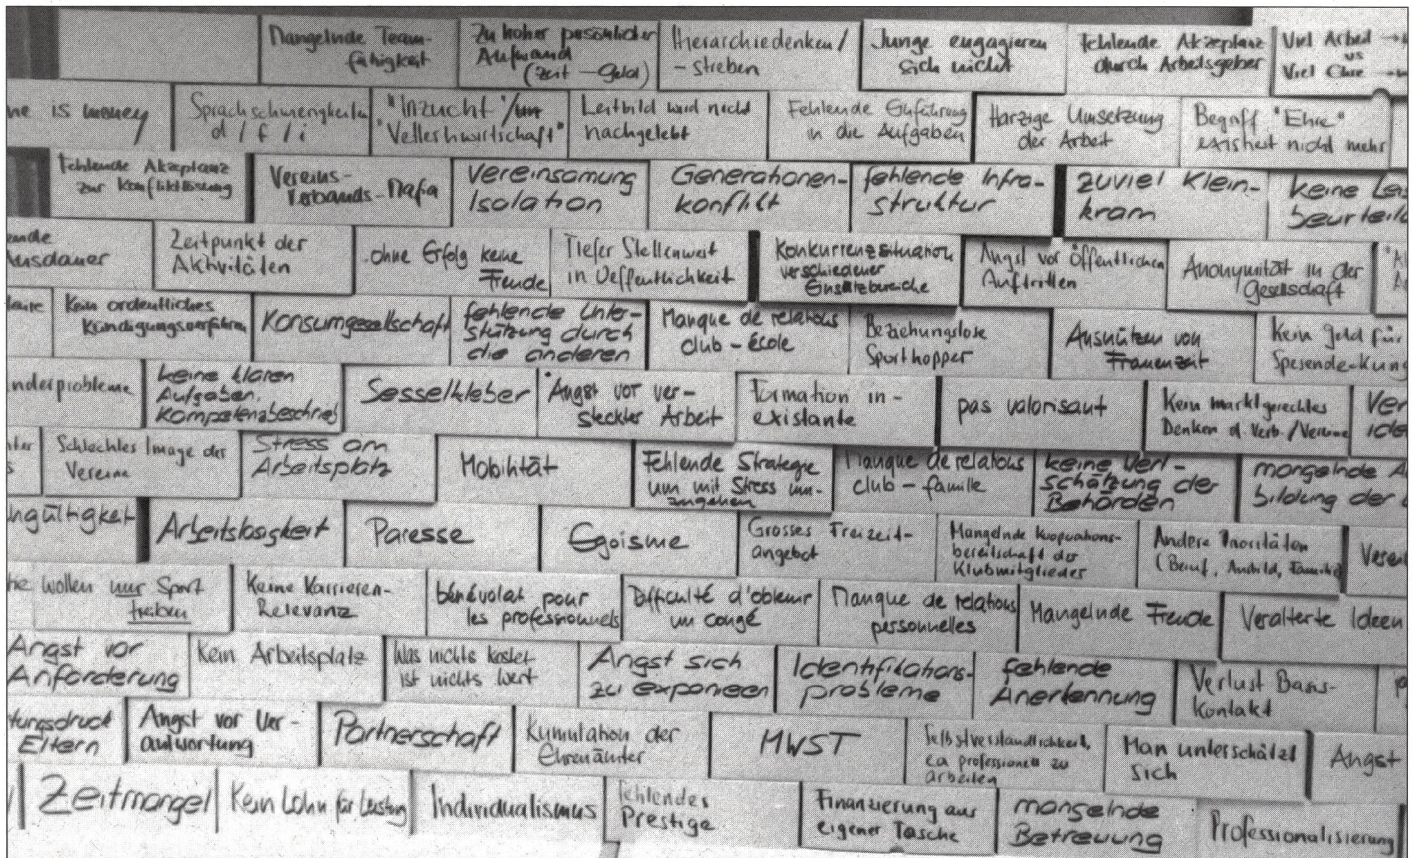 Mangelnde Team-
fähigkeit
Zu hoher persönlicher
Aufwand
(Zeit – Geld)
Hierarchiedenken/
– streben
Junge engagieren
sich nicht
Fehlende Akzeptanz
durch Arbeitsgeber
Viel Arbeit →
vs
Viel Ehre →
me is money
Sprachschwierigkeiten
d / f / i
"Inzucht"/
"Vetterliwirtschaft"
Leitbild wird nicht
nachgelebt
Fehlende Einführung
in die Aufgaben
Harzige Umsetzung
der Arbeit
Begriff "Ehre"
existiert nicht mehr
Fehlende Akzeptanz
zur Konfliktlösung
Vereins-
Verbands-Mafia
Vereinsamung
Isolation
Generationen-
konflikt
fehlende Infra-
struktur
zuviel Klein-
kram
keine Leis
beurteil
ende
Ausdauer
Zeitpunkt der
Aktivitäten
ohne Erfolg keine
Freude
Tiefer Stellenwert
in Oeffentlichkeit
Konkurrenzsituation
verschiedener
Einsatzbereiche
Angst vor öffentlichen
Auftritten
Anonymität in der
Gesellschaft
Kein ordentliches
Kündigungsverfahren
Konsumgesellschaft
fehlende Unter-
stützung durch
die anderen
Manque de relations
club – école
Beziehungslose
Sporthopper
Ausnützen von
Frauenzeit
Kein Geld für
Spesendeckung
nderprobleme
keine klaren
Aufgaben.
Kompetenzbeschrieb
Sesselkleber
Angst vor ver-
steckter Arbeit
Formation in-
existante
pas valorisant
Kein marktgerechtes
Denken d. Verb./Vereine
Ver
ide
Schlechtes Image der
Vereine
Stress am
Arbeitsplatz
Mobilität
Fehlende Strategie
um mit Stress um-
zugehen
Manque de relations
club – famille
keine Wert-
schätzung der
Behörden
mangelnde A
bildung der
ngültigkeit
Arbeitslosigkeit
Paresse
Egoisme
Grosses Freizeit-
angebot
Mangelnde Kooperations-
bereitschaft der
Klubmitglieder
Andere Prioritäten
(Beruf, Ausbild, Familie)
Verein
wollen nur Sport
treiben
Keine Karrieren-
Relevanz
bénévolat pour
les professionnels
Difficulté d'obtenir
un congé
Manque de relations
personnelles
Mangelnde Freude
Veralterte Ideen
Angst vor
Anforderung
Kein Arbeitsplatz
Was nichts kostet
ist nichts wert
Angst sich
zu exponieren
Identifikations-
probleme
fehlende
Anerkennung
Verlust Basis-
kontakt
tungsdruck
Eltern
Angst vor Ver-
antwortung
Partnerschaft
Kumulation der
Ehrenämter
MWST
Selbstverständlichkeit,
ca professionell zu
arbeiten
Man unterschätzt
sich
Angst
Zeitmangel
Kein Lohn für Leistung
Individualismus
fehlendes
Prestige
Finanzierung aus
eigener Tasche
mangelnde
Betreuung
Professionalisierung